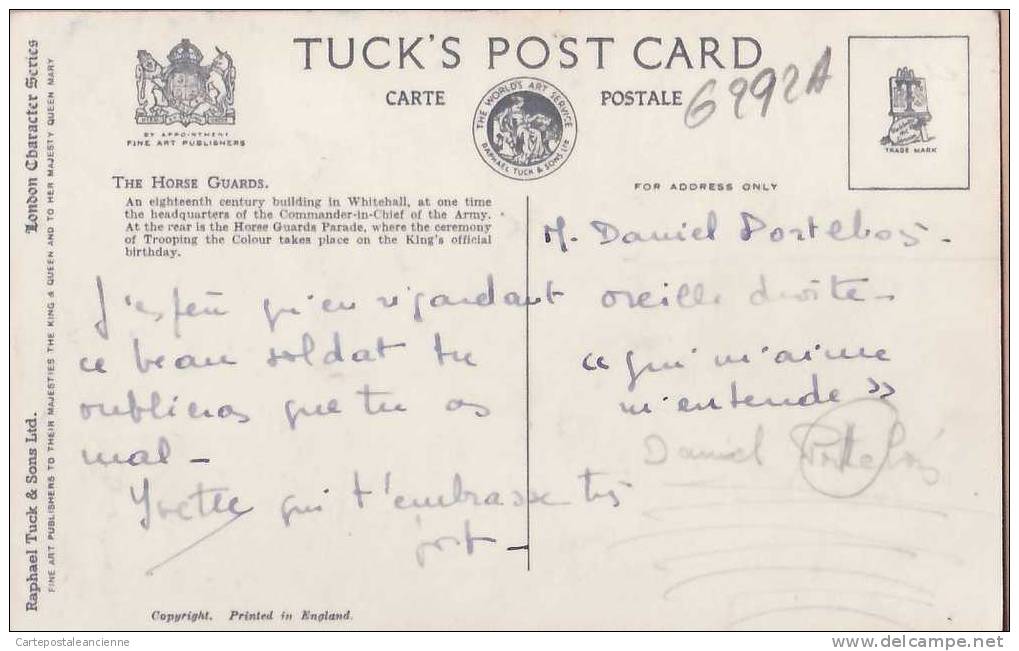 TUCK'S POST CARD
CARTE POSTALE
6292A
THE WORLD'S ART SERVICE
RAPHAEL TUCK & SONS LTD
BY APPOINTMENT
FINE ART PUBLISHERS
TRADE MARK
FOR ADDRESS ONLY
London Character Series
Raphael Tuck & Sons Ltd.
FINE ART PUBLISHERS TO THEIR MAJESTIES THE KING & QUEEN AND TO HER MAJESTY QUEEN MARY
THE HORSE GUARDS.
An eighteenth century building in Whitehall, at one time
the headquarters of the Commander-in-Chief of the Army.
At the rear is the Horse Guards Parade, where the ceremony
of Trooping the Colour takes place on the King's official
birthday.
J'espère qu'en regardant
ce beau soldat tu
oublieras que tu as
mal -
Yvette qui t'embrasse très
fort -
M. Daniel Portebois -
oreille droite -
"qui m'aime
m'entende"
Daniel Portebois
Copyright. Printed in England.
Cartepostaleancienne
www.delcampe.net